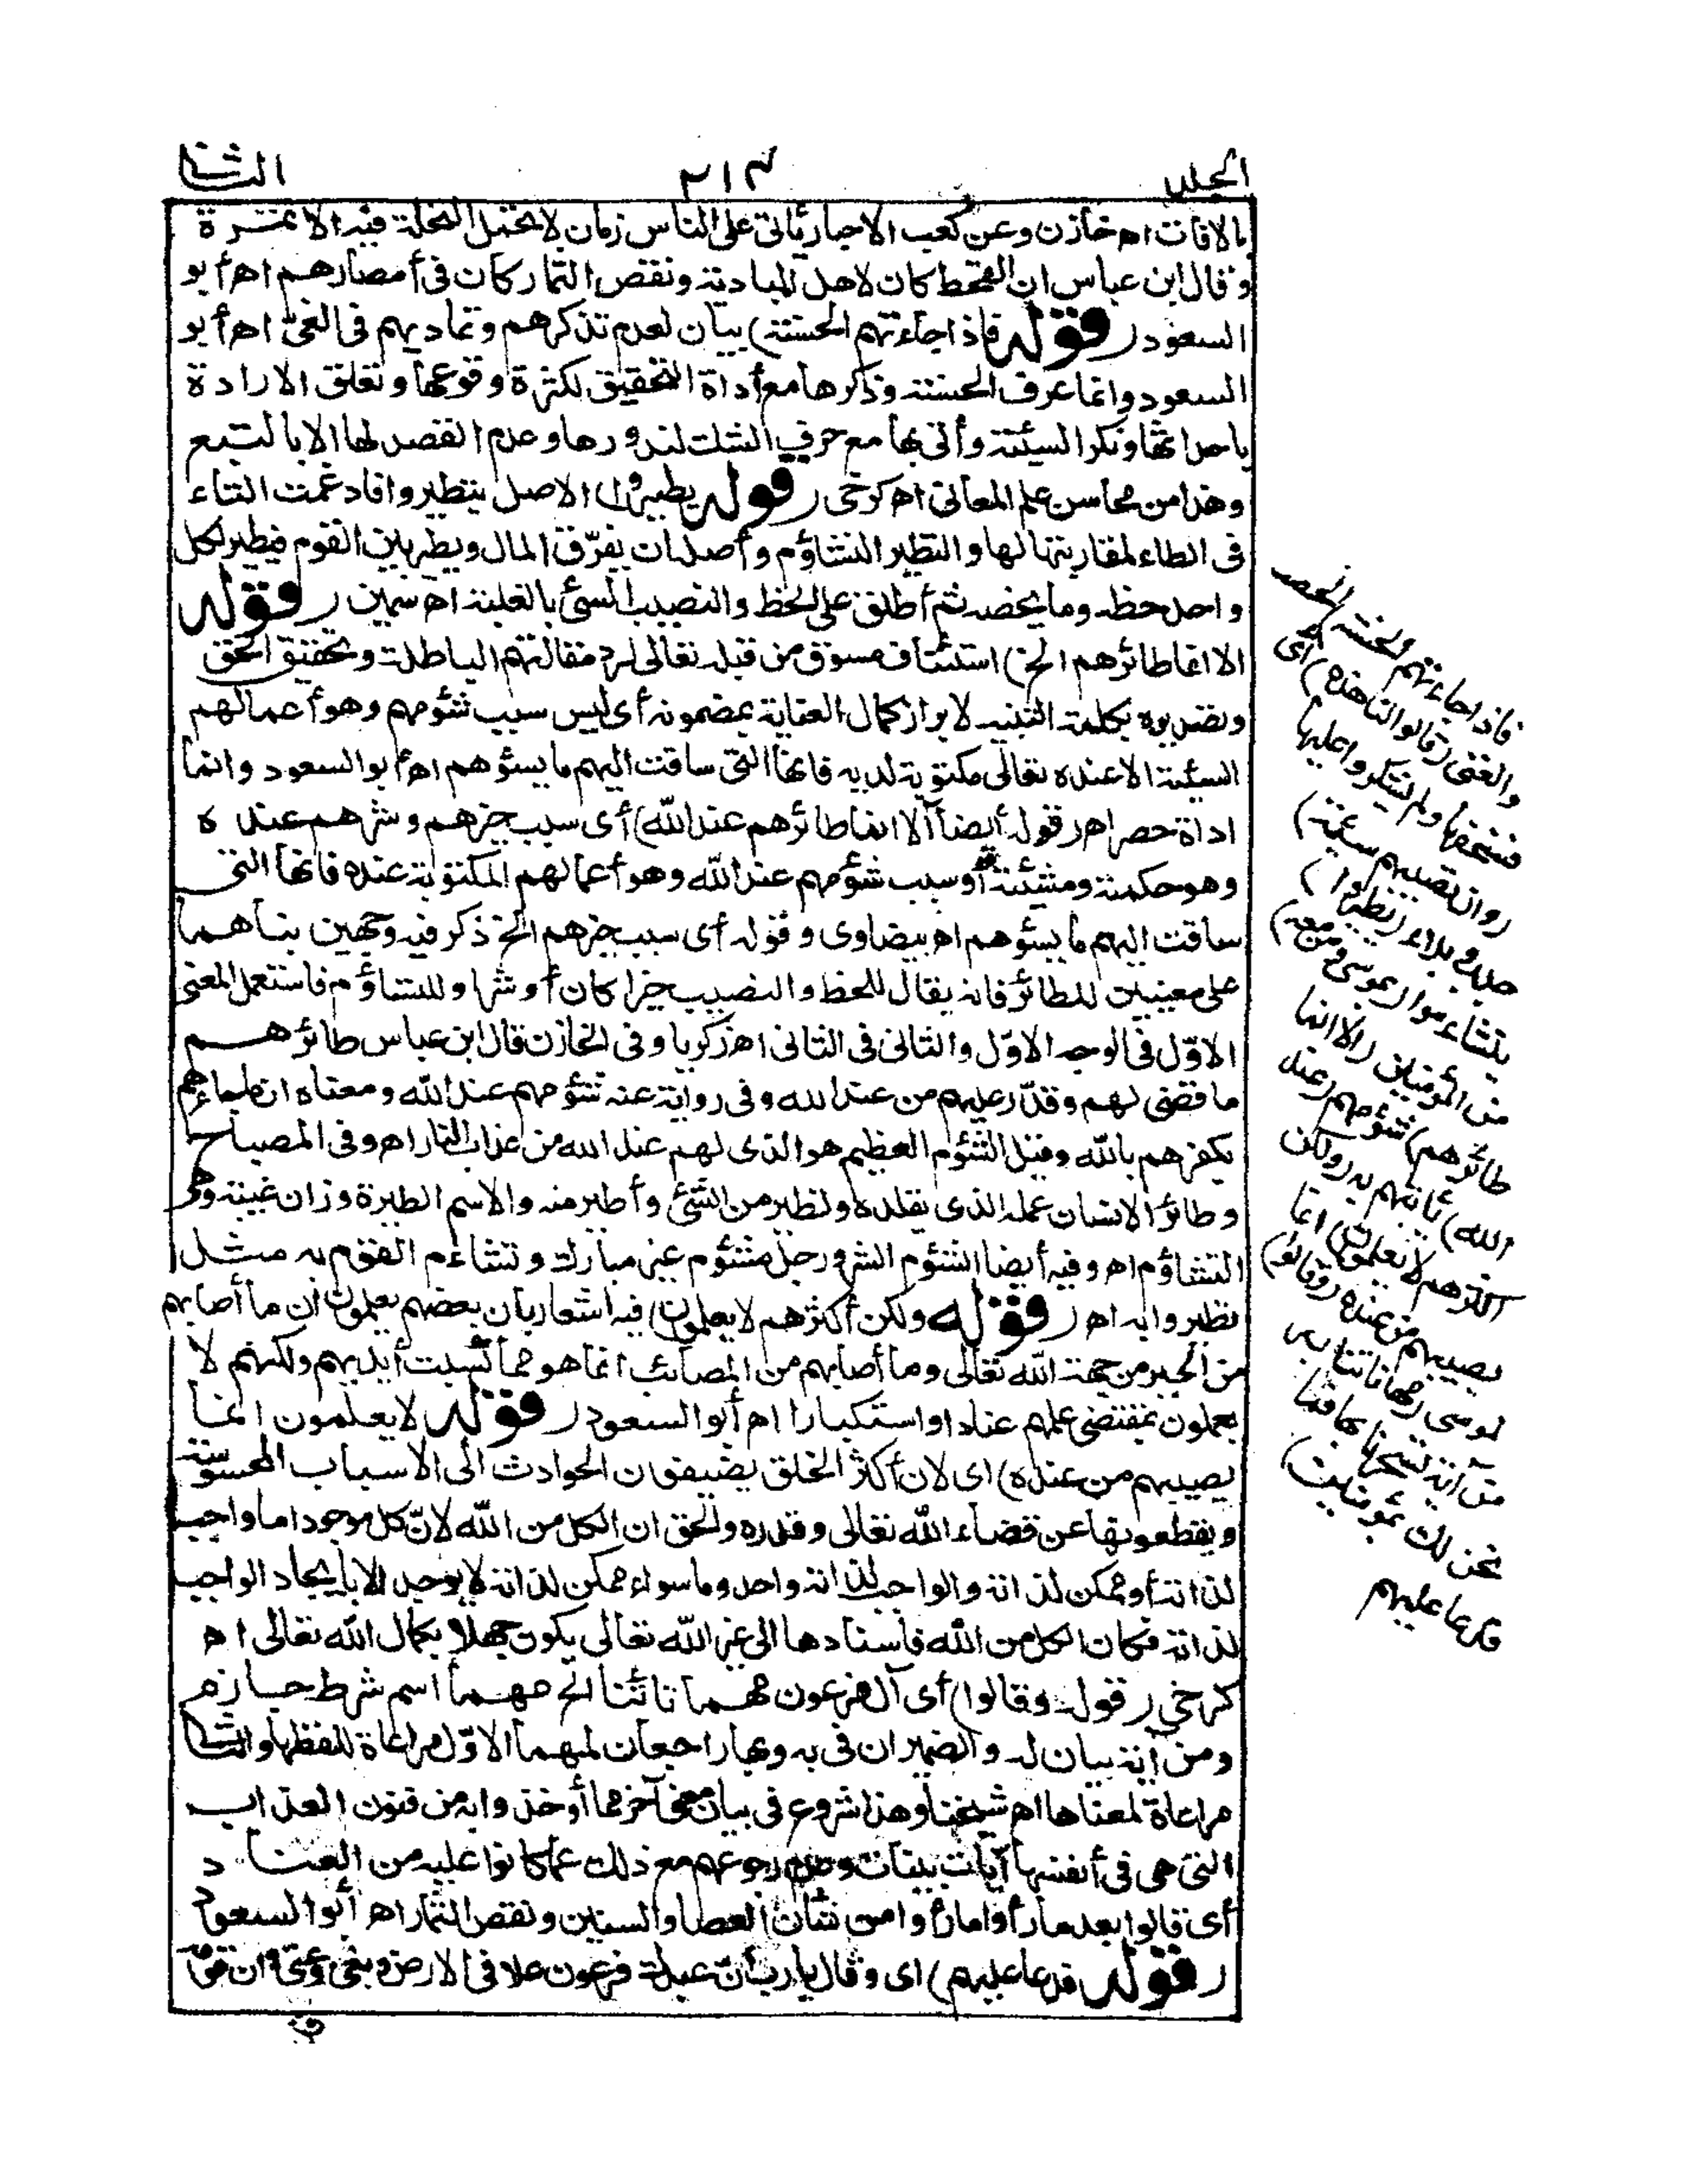 الجلد
٢١٣
الثانى
بالافات اه خازن وعن كعب الاحبار يأتى على الناس زمان لا تحمل النخلة فيه الا تمرة
وقال ابن عباس ان القحط كان لاهل البادية ونقص الثمار كان فى أمصارهم اه أبو
السعود (قوله فاذا جاءتهم الحسنة) بيان لعدم تذكرهم وتماديهم فى الغىّ اه أبو
السعود وانما عرف الحسنة وذكرها مع أداة التحقيق لكثرة وقوعها وتعلق الارادة
باحداثها ونكر السيئة وأتى بها مع حرف الشك لندورها وعدم القصد لها الا بالتبع
وهذا من محاسن علم المعانى اه كرخى (قوله يطيروا) الاصل يتطيروا فادغمت التاء
فى الطاء لمقاربتها لها والتطير التشاؤم وأصله ان يفرّق المال ويطير بين القوم فيطير لكل
واحد حظه وما يخصه ثم أطلق على الحظ والنصيب السئ بالغلبة اه سمين (قوله
الا انما طائرهم الخ) استئناف مسوق من قبله تعالى لرد مقالتهم الباطلة وتحقيق الحق
وتصديره بكلمة التنبيه لابراز كمال العناية بمضمونه أى ليس سبب شؤمهم وهو أعمالهم
السيئة الا عنده تعالى مكتوبة لديه فانها التى ساقت اليهم ما يسؤهم اه أبو السعود وانما
اداة حصر اه (قوله أيضا ألا انما طائرهم عند الله) أى سبب خيرهم وشرهم عنده
وهو حكمته ومشيئته أو سبب شؤمهم عند الله وهو أعمالهم المكتوبة عنده فانها التى
ساقت اليهم ما يسؤهم اه بيضاوى وقوله أى سبب خيرهم الخ ذكر فيه وجهين بناهما
على معنيين للطائر فانه يقال للحظ والنصيب خيرا كان أو شرا وللتشاؤم فاستعمل المعنى
الاوّل فى الوجه الاوّل والثانى فى الثانى اه زكريا وفى الخازن قال ابن عباس طائرهم
ما قضى لهم وقدّر عليهم من عند الله وفى رواية عنه شؤمهم عند الله ومعناه انما جاءهم
بكفرهم بالله وقيل الشؤم العظيم هو الذى لهم عند الله من عذاب النار اه وفى المصباح
وطائر الانسان عمله الذى يقلده وتطير من الشئ وأطير منه والاسم الطيرة وزان عنبة وهى
التشاؤم اه وفيه أيضا الشؤم الشر ورجل مشؤم غير مبارك وتشاءم القوم به مثل
تطيروا به اه (قوله ولكن أكثرهم لا يعلمون) فيه اشعار بان بعضهم يعلمون أن ما أصابهم
من الخير من جهة الله تعالى وما أصابهم من المصائب انما هو مما كسبت أيديهم ولكنهم لا
يعملون بمقتضى علمهم عنادا واستكبارا اه أبو السعود (قوله لا يعلمون انما
يصيبهم من عنده) اى لان أكثر الخلق يضيفون الحوادث الى الاسباب المحسوسة
ويقطعونها عن قضاء الله تعالى وقدره والحق ان الكل من الله لانّ كل موجود اما واجب
لذاته أو ممكن لذاته والواجب لذاته واحد وما سواه ممكن لذاته لا يوجد الا بايجاد الواجب
لذاته فكان الكل من الله فاسنادها الى غير الله تعالى يكون جهلا بكمال الله تعالى اه
كرخى (قوله وقالوا) أى آل فرعون مهما تأتنا الخ مهما اسم شرط جازم
ومن آية بيان له والضميران فى به وبها راجعان لمهما الاوّل مراعاة للفظها والثانى
مراعاة لمعناها اه شيخنا وهذا شروع فى بيان معنى آخر مما أوخذوا به من فنون العذاب
التى هى فى أنفسها آيات بينات وعدم رجوعهم مع ذلك عما كانوا عليه من العناد
أى قالوا بعد ما رأوا ما رأوا من شأن العصا والسنين ونقص الثمار اه أبو السعود
(قوله فدعا عليهم) اى وقال يا رب انّ عبدك فرعون علا فى الارض وبغى وعتى وان قومه
فاذا جاءتهم الحسنة الخصب
والغنى (قالوا لنا هذه) أى
نستحقها ولم يشكروا عليها
(وان تصبهم سيئة)
جدب وبلاء (يطيروا)
يتشاءموا (بموسى ومن معه)
من المؤمنين (الا انما
طائرهم) شؤمهم (عند
الله) يأتيهم به (ولكن
أكثرهم لا يعلمون) انما
يصيبهم من عنده (وقالوا)
لموسى (مهما تأتنا به
من آية لتسحرنا بها فما
نحن لك بمؤمنين)
فدعا عليهم